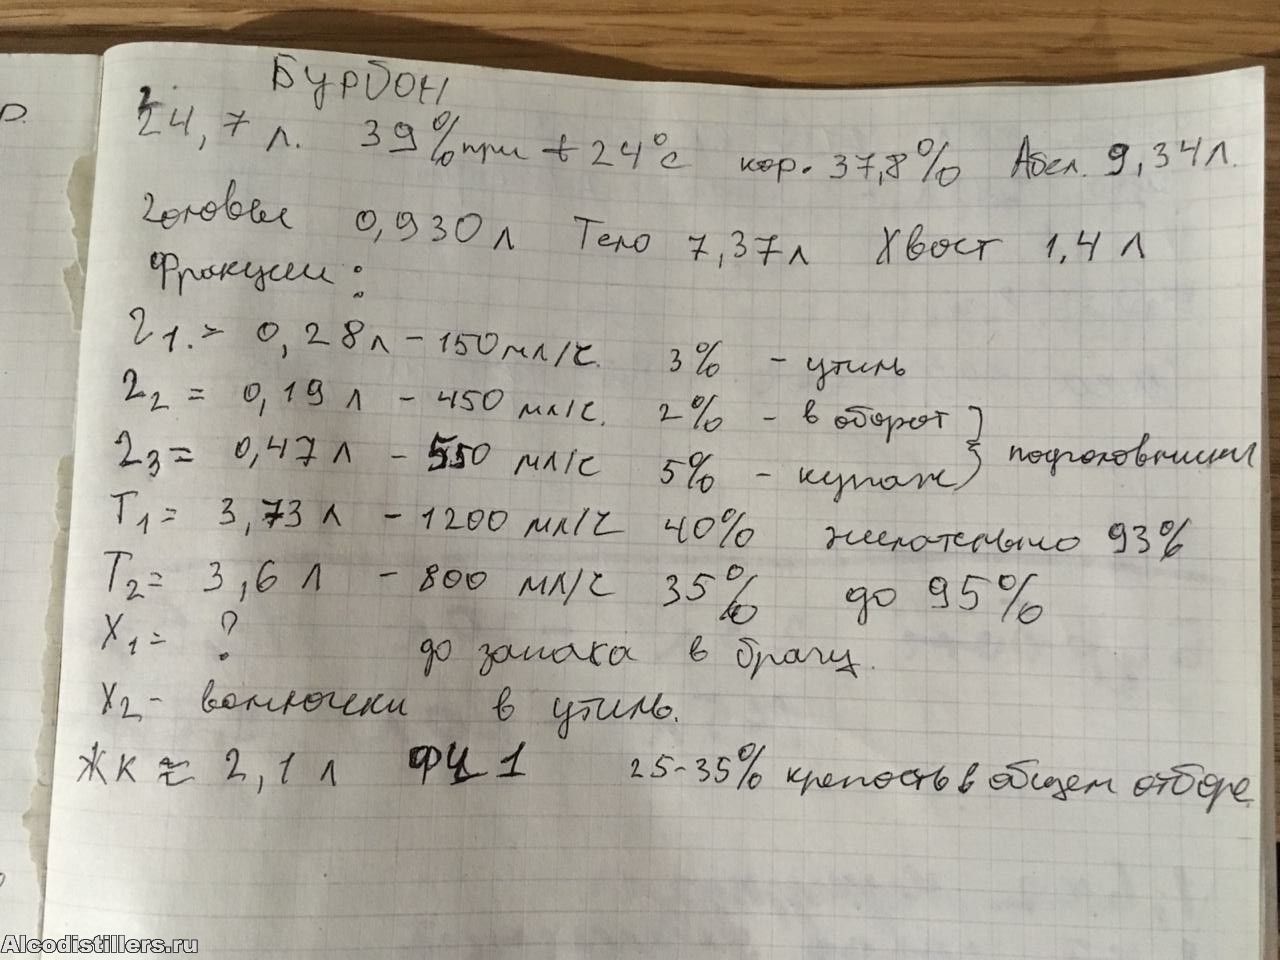 Бурбон
24,7 л. 39% при +24°С кор. 37,8% Абсл. 9,34л.
Головы 0,930л Тело 7,37л Хвост 1,4 л
Фракции:
Г1. = 0,28л - 150 мл/ч. 3% - утиль
Г2 = 0,19 л - 450 мл/ч. 2% - в оборот
Г3 = 0,47 л - 550 мл/ч 5% - купаж } подголовники
Т1 = 3,73 л - 1200 мл/ч 40% желательно 93%
Т2 = 3,6 л - 800 мл/ч 35% до 95%
Х1 = ? до запаха в брагу.
Х2 - вонючки в утиль.
ЖК ≈ 2,1 л ФЦ 1 25-35% крепость в общем отборе
р.
Alcodistillers.ru